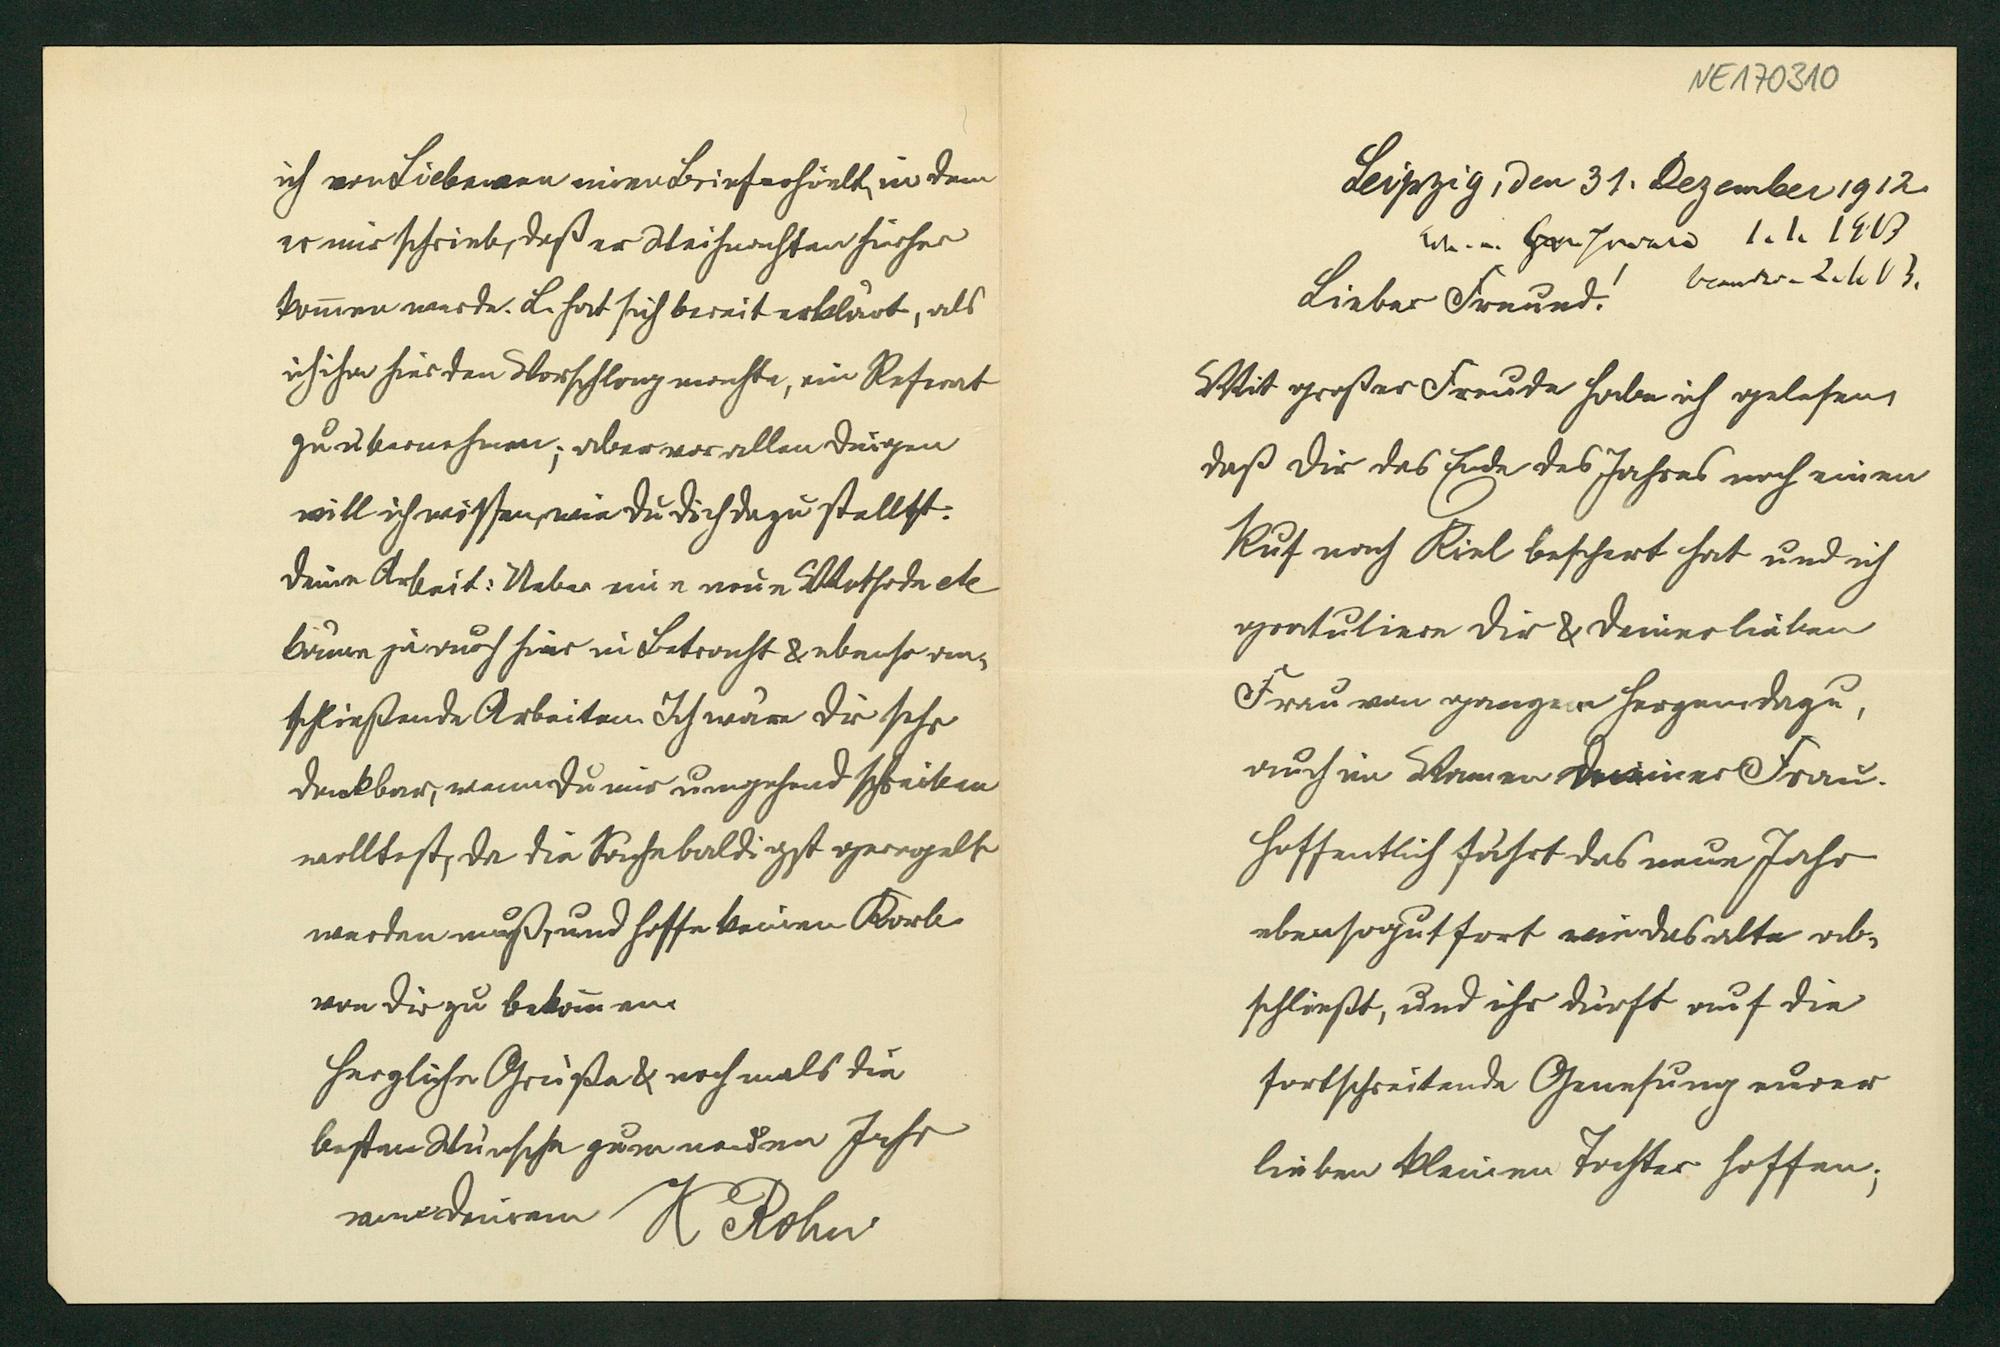 NE170310
Leipzig, den 31. Dezember 1912.
1.1.1913
2.1.13.
Lieber Freund!
Mit großer Freude habe ich gelesen,
daß Dir das Ende des Jahres noch einen
Ruf nach Kiel beschert hat und ich
gratuliere Dir & Deiner lieben
Frau von ganzem Herzen dazu,
auch im Namen meiner Frau.
Hoffentlich fährt das neue Jahr
ebensogut fort wie das alte ab-
schließt, und ihr dürft auf die
fortschreitende Genesung eurer
lieben kleinen Tochter hoffen;
ich von Liebmann einen Brief erhielt, in dem
er mir schrieb, daß er Weihnachten hierher
kom̄en werde. L. hat sich bereit erklärt, als
ich ihm hier den Vorschlag machte, ein Referat
zu übernehmen; aber vor allen Dingen
will ich wissen, wie Du Dich dazu stellst.
Deine Arbeit: Ueber eine neue Methode etc
käme ja auch hier in Betracht & ebenso an-
schließende Arbeiten. Ich wäre Dir sehr
dankbar, wenn Du mir umgehend schreiben
wolltest, da die Sache baldigst geregelt
werden muß, und hoffe keinen Korb
von Dir zu bekom̄en.
Herzliche Grüße & nochmals die
besten Wünsche zum neuen Jahr
von Deinem K Rohn